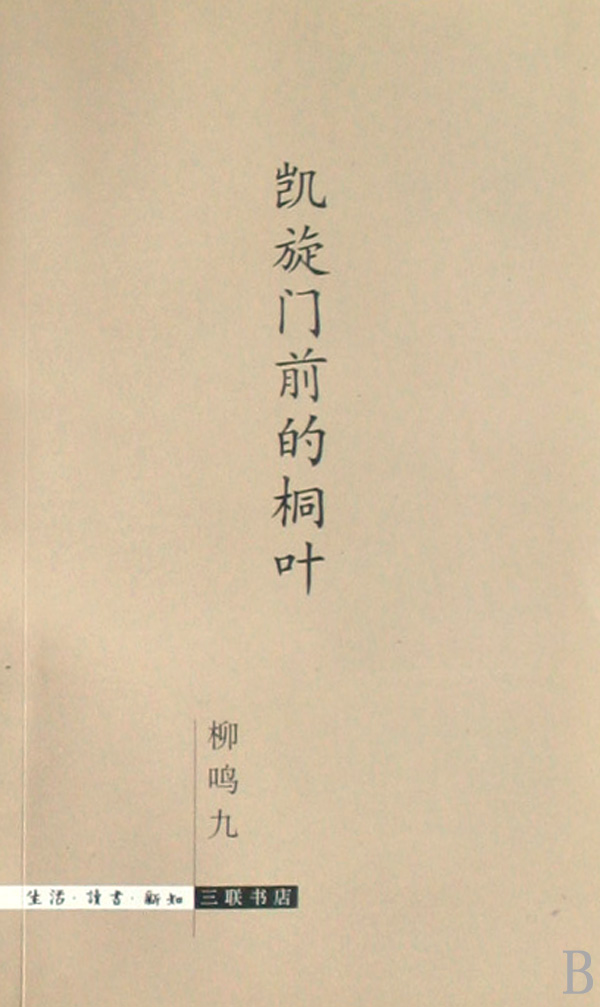 凯旋门前的桐叶
柳鸣九
生活·讀書·新知 三联书店
B